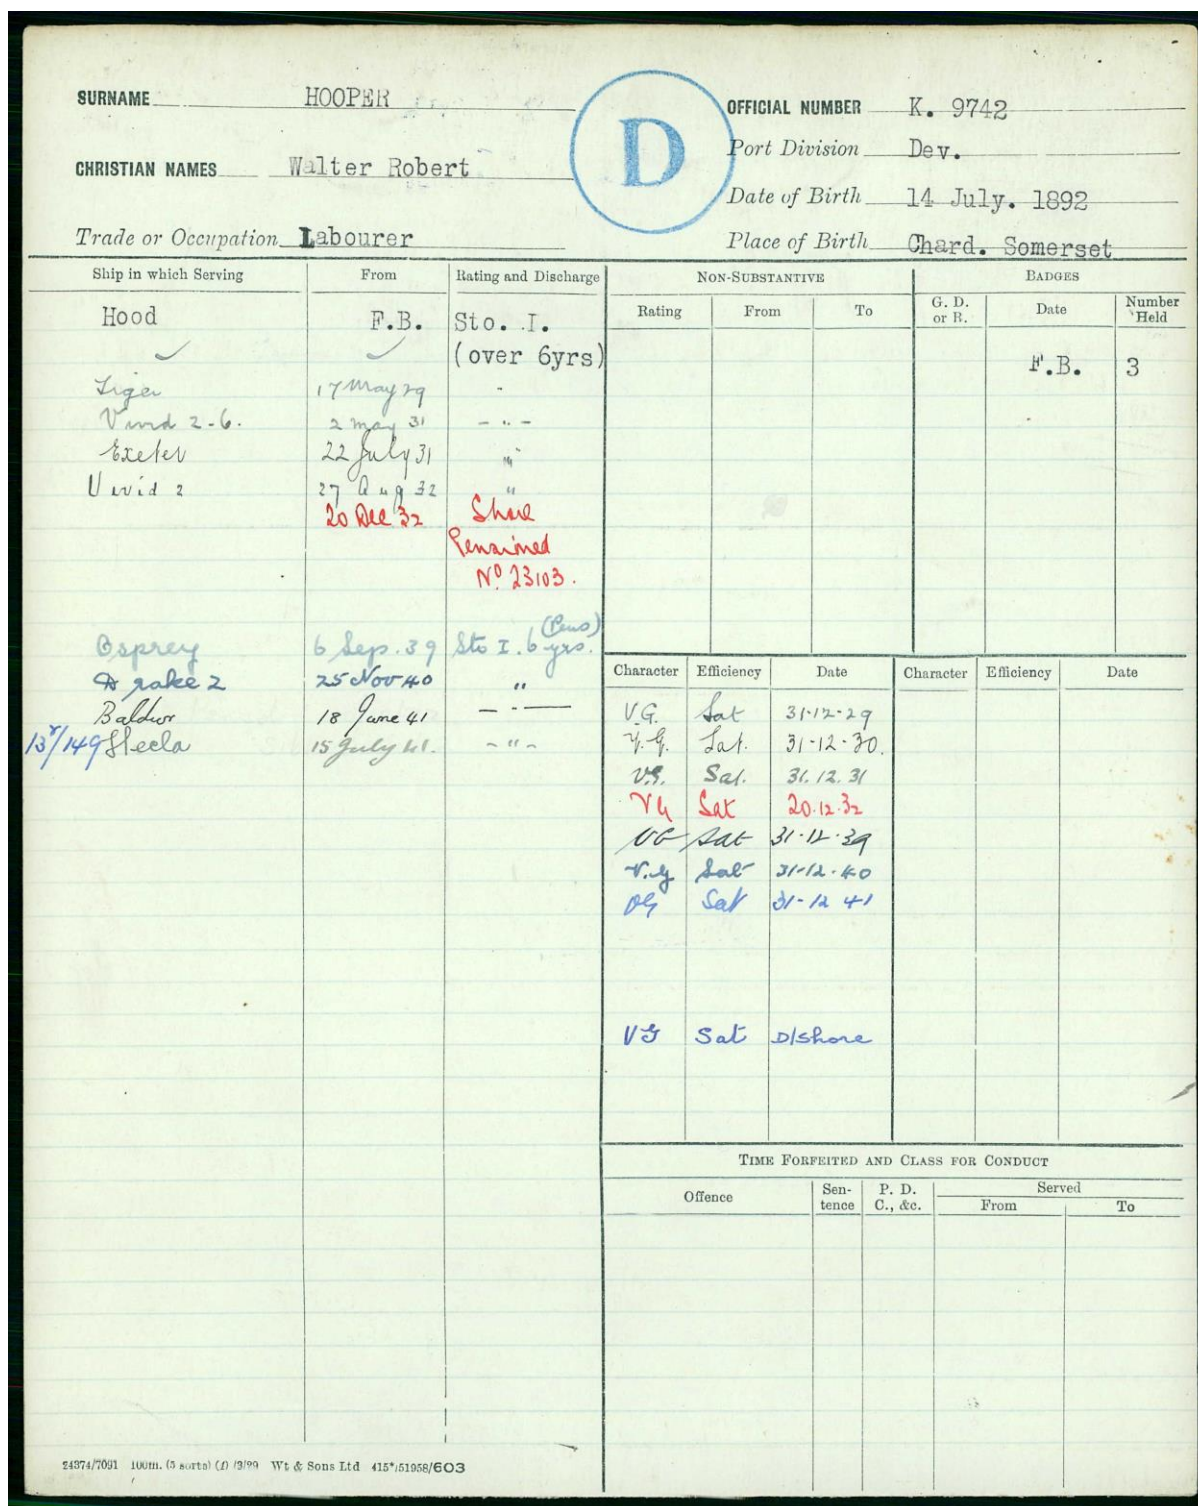 SURNAME HOOPER
CHRISTIAN NAMES Walter Robert
Trade or Occupation Labourer
D
OFFICIAL NUMBER K. 9742
Port Division Dev.
Date of Birth 14 July. 1892
Place of Birth Chard. Somerset
Ship in which Serving From Rating and Discharge
Hood F.B. Sto. I.
(over 6yrs)
Tiger 17 May 29 "
Vivid 2-6. 2 May 31 - " -
Exeter 22 July 31 "
Vivid 2 27 Aug 32 "
20 Dec 32 Shore
Pensioned
No 23103.
(Pens)
Osprey 6 Sep. 39 Sto I. 6 yrs.
Drake 2 25 Nov 40 "
Baldur 18 June 41 - " -
13/149 Hecla 15 July 41. - " -
NON-SUBSTANTIVE
Rating From To
BADGES
G. D. or R. Date Number Held
F.B. 3
Character Efficiency Date Character Efficiency Date
V.G. Sat 31-12-29
V.G. Sat. 31-12-30.
V.G. Sat. 31.12.31
VG Sat 20.12.32
VG Sat 31-12-39
V.G Sat 31-12-40
VG Sat 31-12 41
VG Sat D/Shore
TIME FORFEITED AND CLASS FOR CONDUCT
Offence Sen-tence P. D. C., &c. Served
From To
24374/7091 100m. (5 sorts) (1) /3/29 Wt & Sons Ltd 415*/51958/603